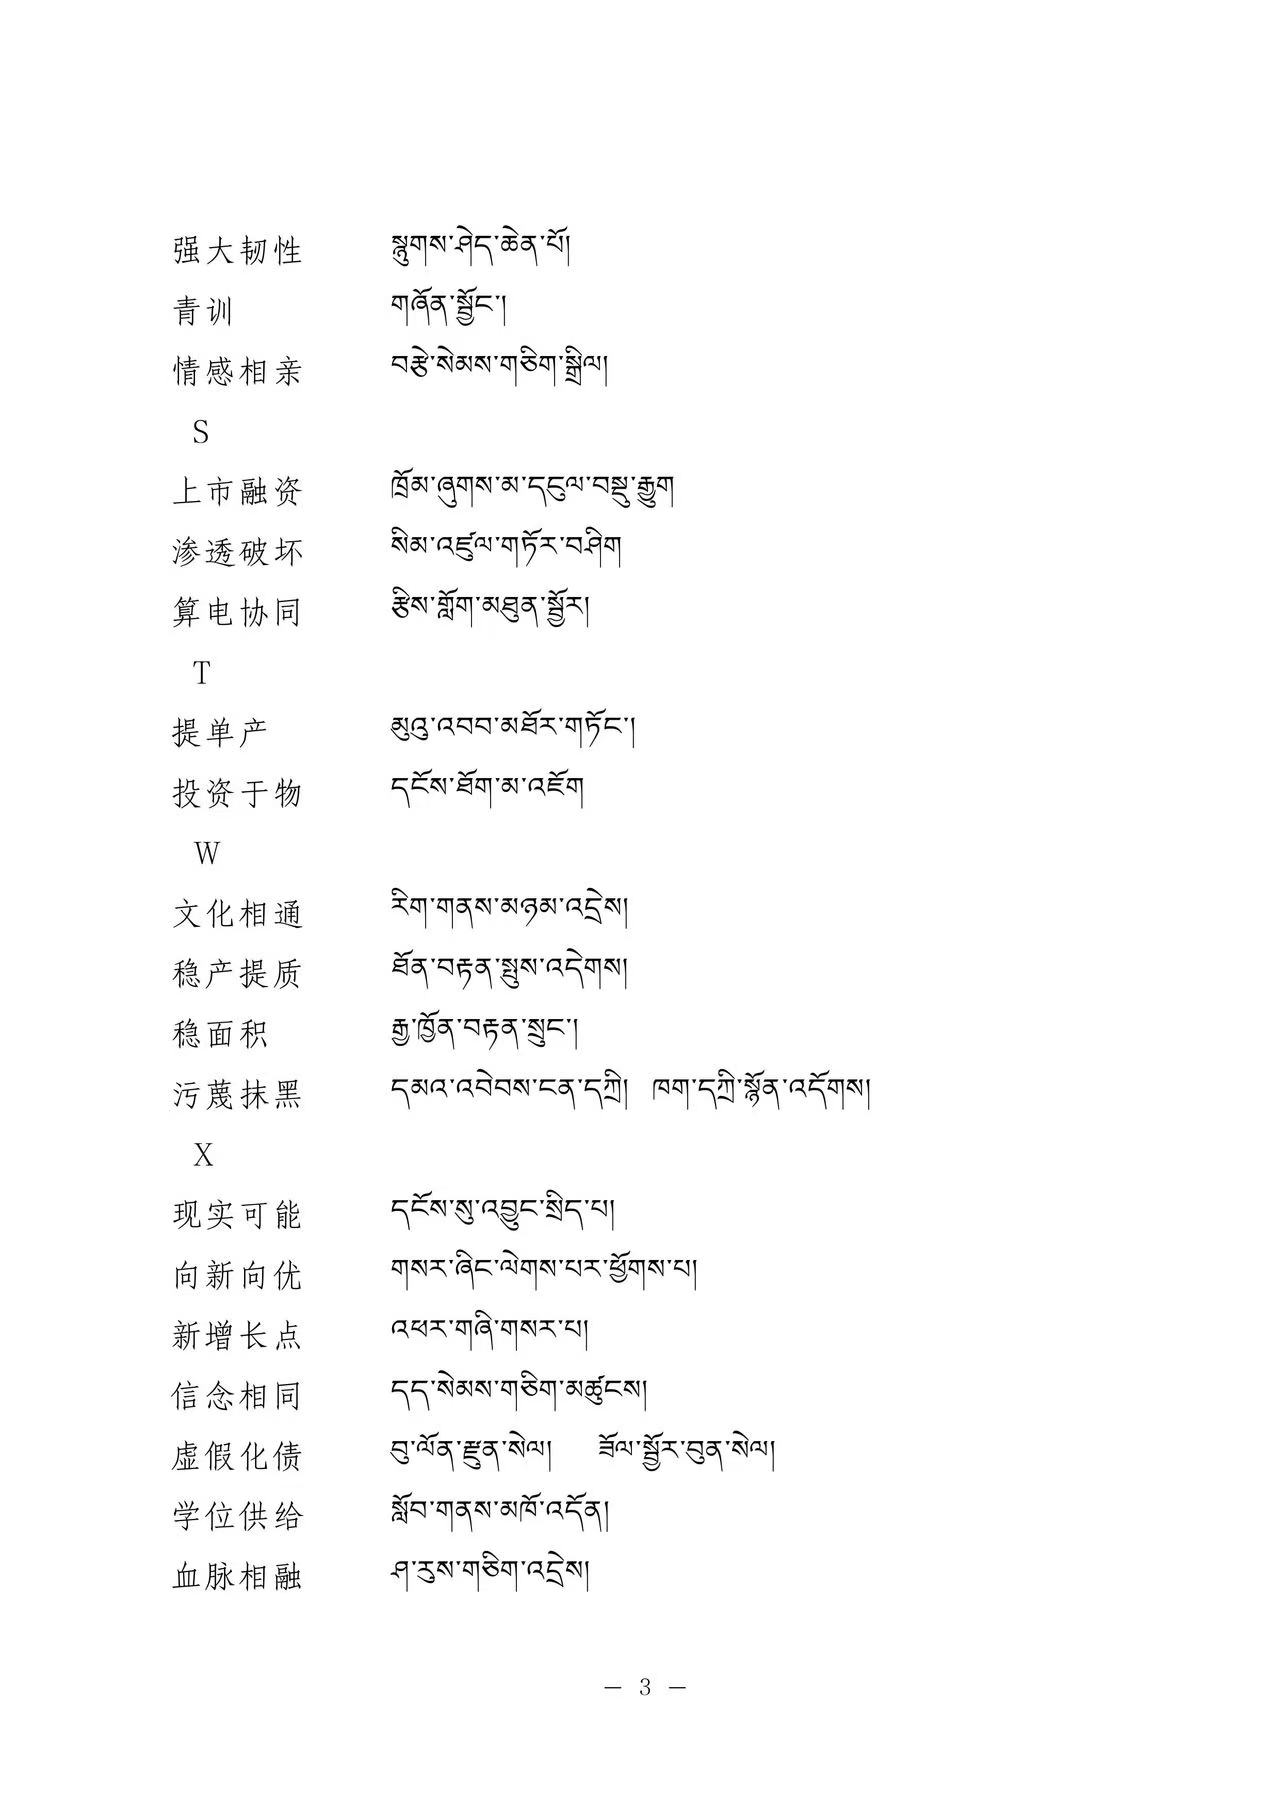 强大韧性 སླུགས་ཤེད་ཆེན་པོ།
青训 གཞོན་སྦྱོང་།
情感相亲 བརྩེ་སེམས་གཅིག་སྒྲིལ།
S
上市融资 ཁྲོམ་ཞུགས་མ་དངུལ་བསྡུ་རྒྱུག
渗透破坏 སིམ་འཛུལ་གཏོར་བཤིག
算电协同 རྩིས་གློག་མཐུན་སྦྱོར།
T
提单产 མུའུ་འབབ་མཐོར་གཏོང་།
投资于物 དངོས་ཐོག་མ་འཇོག
W
文化相通 རིག་གནས་མཉམ་འདྲེས།
稳产提质 ཐོན་བརྟན་སྤུས་འདེགས།
稳面积 རྒྱ་ཁྱོན་བརྟན་སྲུང་།
污蔑抹黑 དམའ་འབེབས་ངན་དཀྲི། ཁག་དཀྲི་སྐྱོན་འདོགས།
X
现实可能 དངོས་སུ་འབྱུང་སྲིད་པ།
向新向优 གསར་ཞིང་ལེགས་པར་ཕྱོགས་པ།
新增长点 འཕར་གཞི་གསར་པ།
信念相同 དད་སེམས་གཅིག་མཚུངས།
虚假化债 བུ་ལོན་རྫུན་སེལ། ཟོལ་སྦྱོར་བུན་སེལ།
学位供给 སློབ་གནས་མཁོ་འདོན།
血脉相融 ཤ་རུས་གཅིག་འདྲེས།
— 3 —